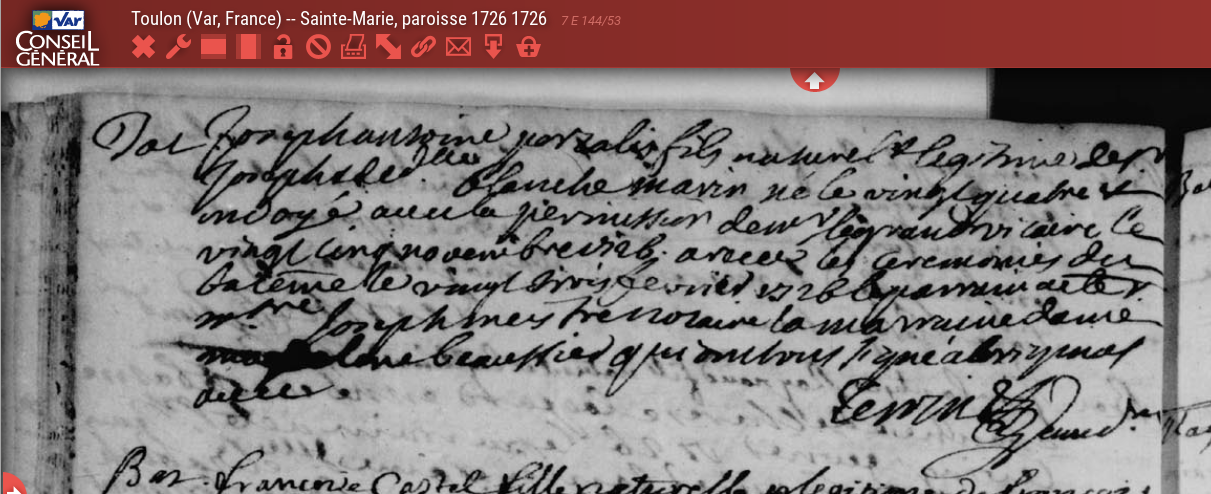 Toulon (Var, France) -- Sainte-Marie, paroisse 1726 1726 7 E 144/53
VAR
CONSEIL
GÉNÉRAL
Bat Joseph antoine porzalis fils naturel & legitime de sr
Joseph & de dlle blanche marin né le vingt quatre et
ondoyé avec la permission de mr le grand vicaire le
vingt cinq novembre 1725 a receu les ceremonies du
bateme le vingt trois fevrier 1726 le parrain a eté
mtre Joseph mestre notaire la marraine dame
claire beaussier qui ont tous signé a l'original
avec
Bat françoise Castel fille naturelle & legitime de françois